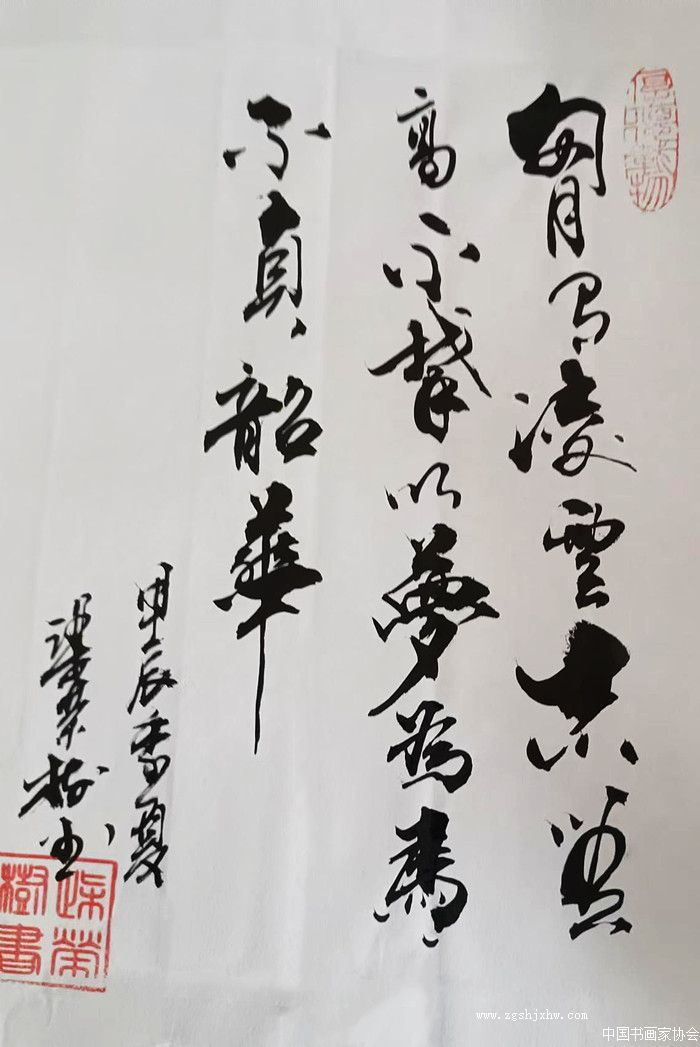 厚德載物
胸有凌雲志無
高不攀以夢為馬
不負韶華
甲辰季夏
榮樹書
榮樹書
www.zgshjxhw.com
中国书画家协会